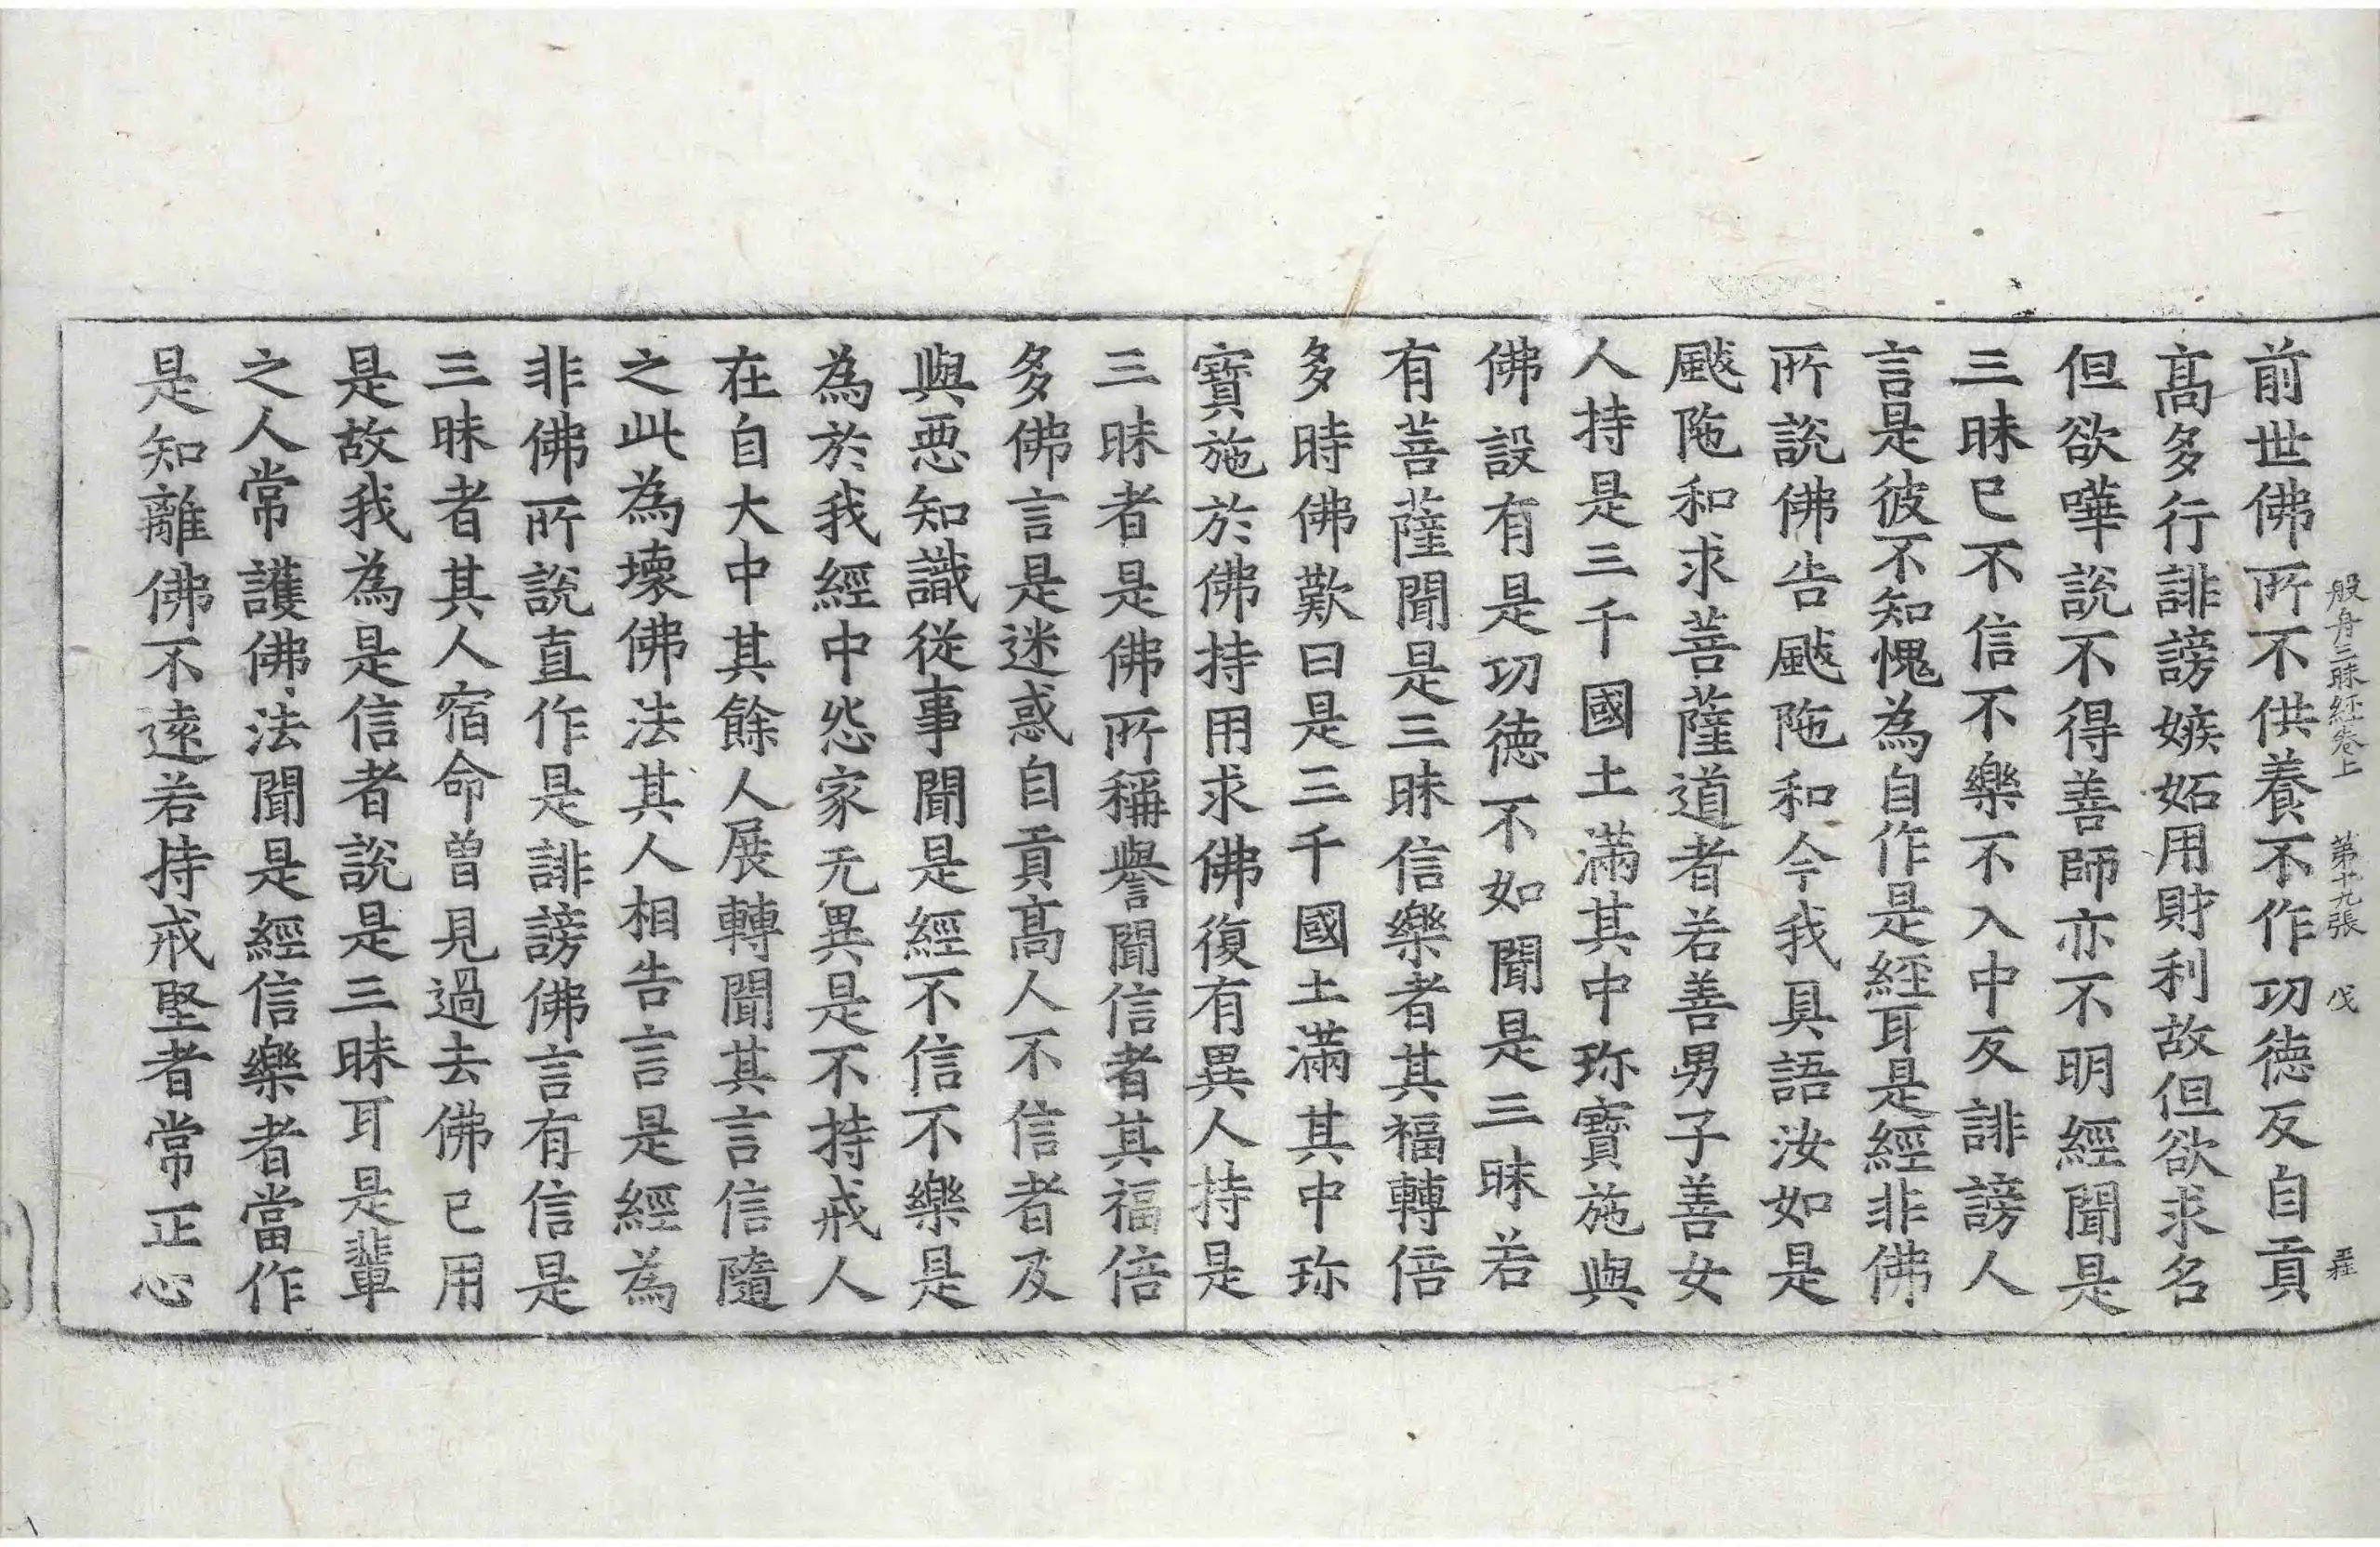 般舟三昧経卷上 第十九張 戊
前世佛所不供養不作功德反自貢
髙多行誹謗嫉妬用財利故但欲求名
但欲嘩說不得善師亦不明經聞是
三昧已不信不樂不入中反誹謗人
言是彼不知愧為自作是經耳是經非佛
所說佛告颰陁和今我具語汝如是
颰陁和求菩薩道者若善男子善女
人持是三千國土滿其中珎寶施與
佛設有是功德不如聞是三昧若
有菩薩聞是三昧信樂者其福轉倍
多時佛歎曰是三千國土滿其中珎
寶施於佛持用求佛復有異人持是
三昧者是佛所稱譽聞信者其福倍
多佛言是迷惑自貢髙人不信者及
與惡知識從事聞是經不信不樂是
為於我經中怨家无異是不持戒人
在自大中其餘人展轉聞其言信隨
之此為壞佛法其人相告言是經為
非佛所說直作是誹謗佛言有信是
三昧者其人宿命曾見過去佛已用
是故我為是信者說是三昧耳是輩
之人常護佛法聞是經信樂者當作
是知離佛不遠若持戒堅者常正心